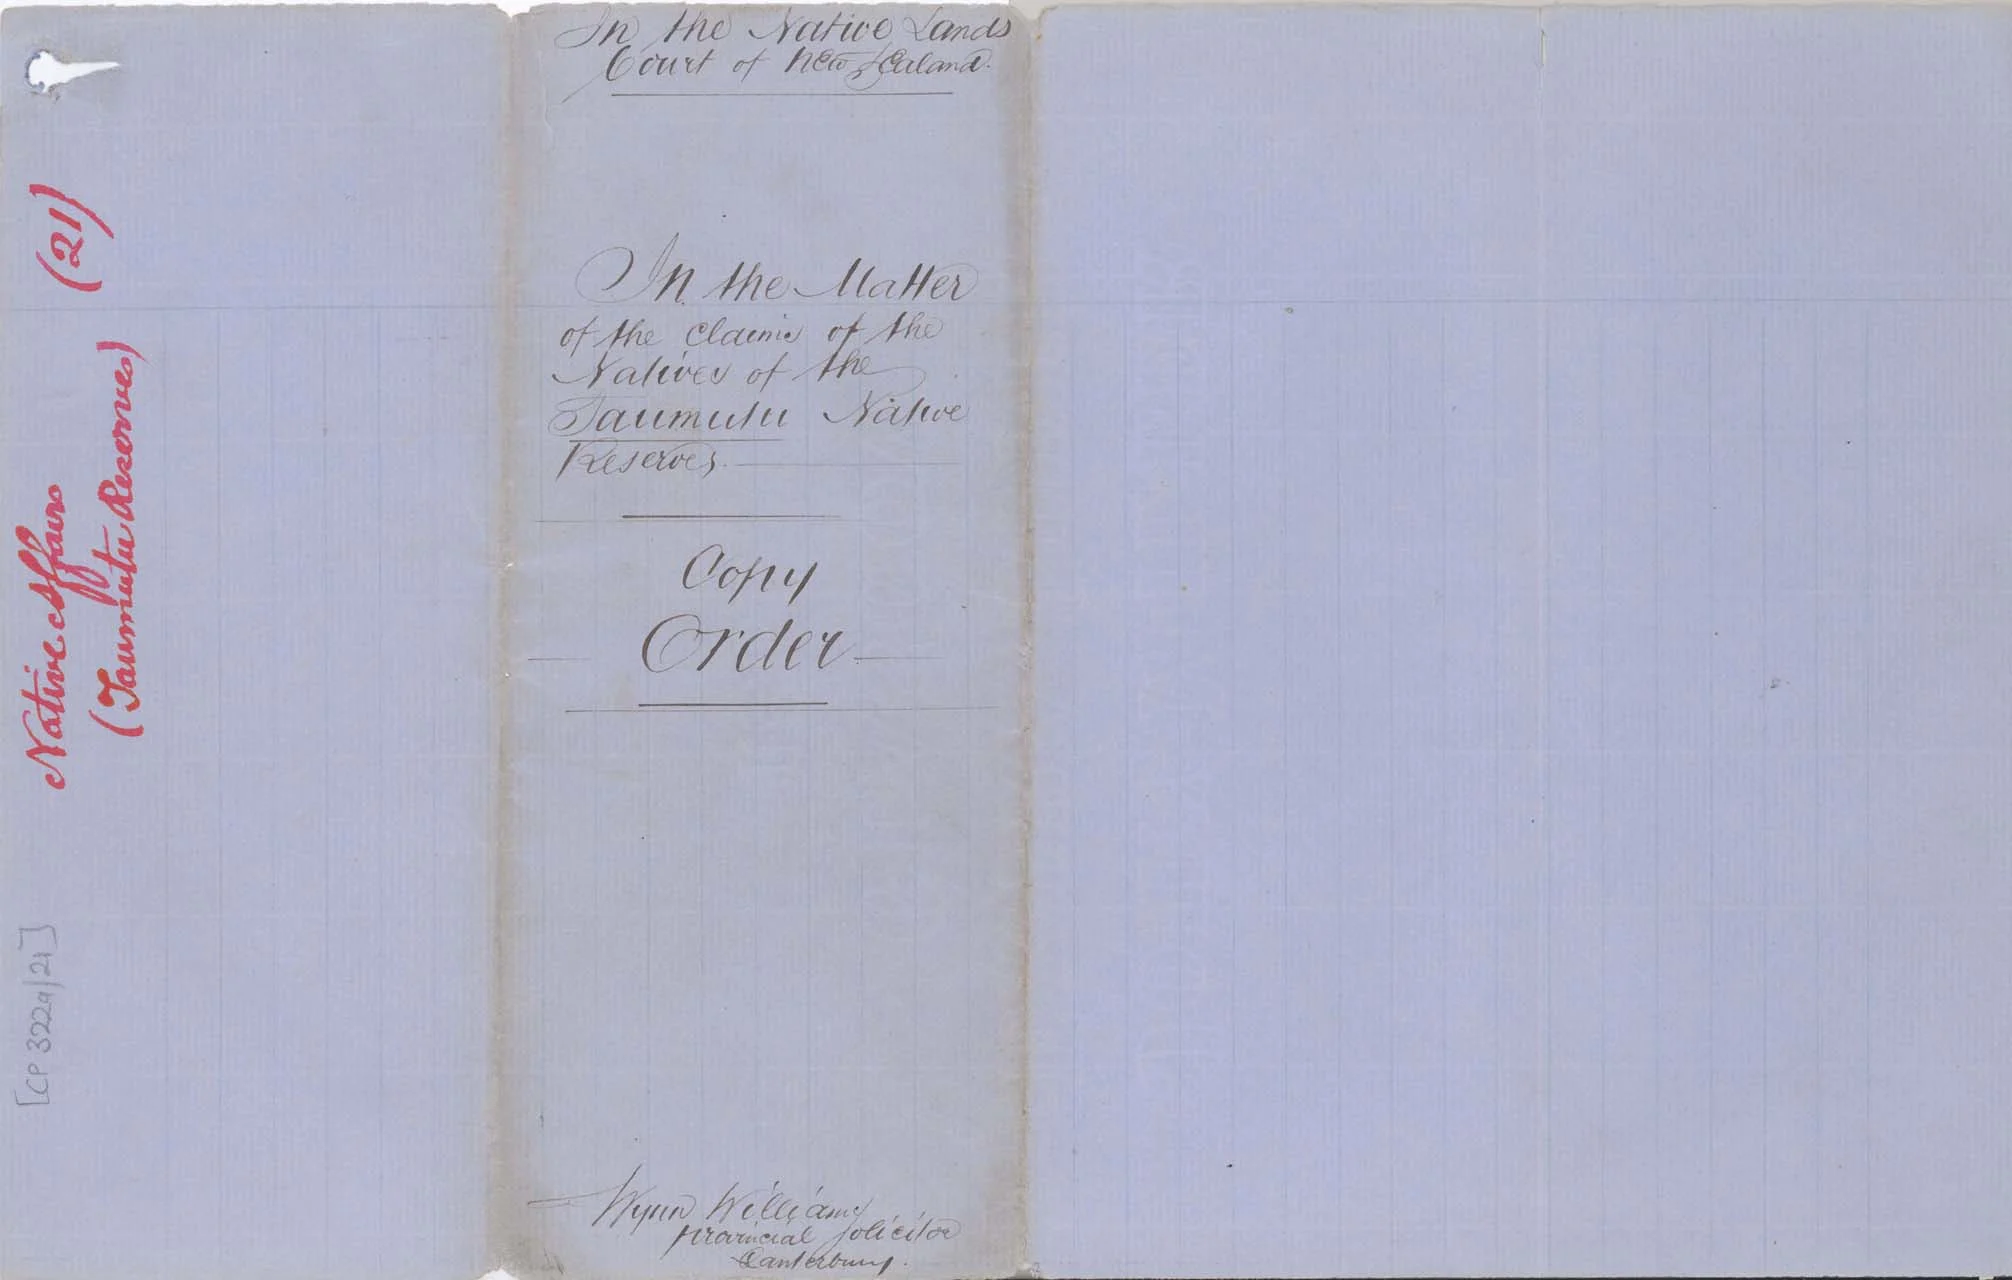 In the Native Lands
Court of New Zealand.
In the Matter
of the claims of the
Natives of the
Taumutu Native
Reserves.
Copy
Order
Wynn Williams
Provincial Solicitor
Canterbury.
Native Affairs (21)
(Taumutu Reserves)
[CP 322a/21]